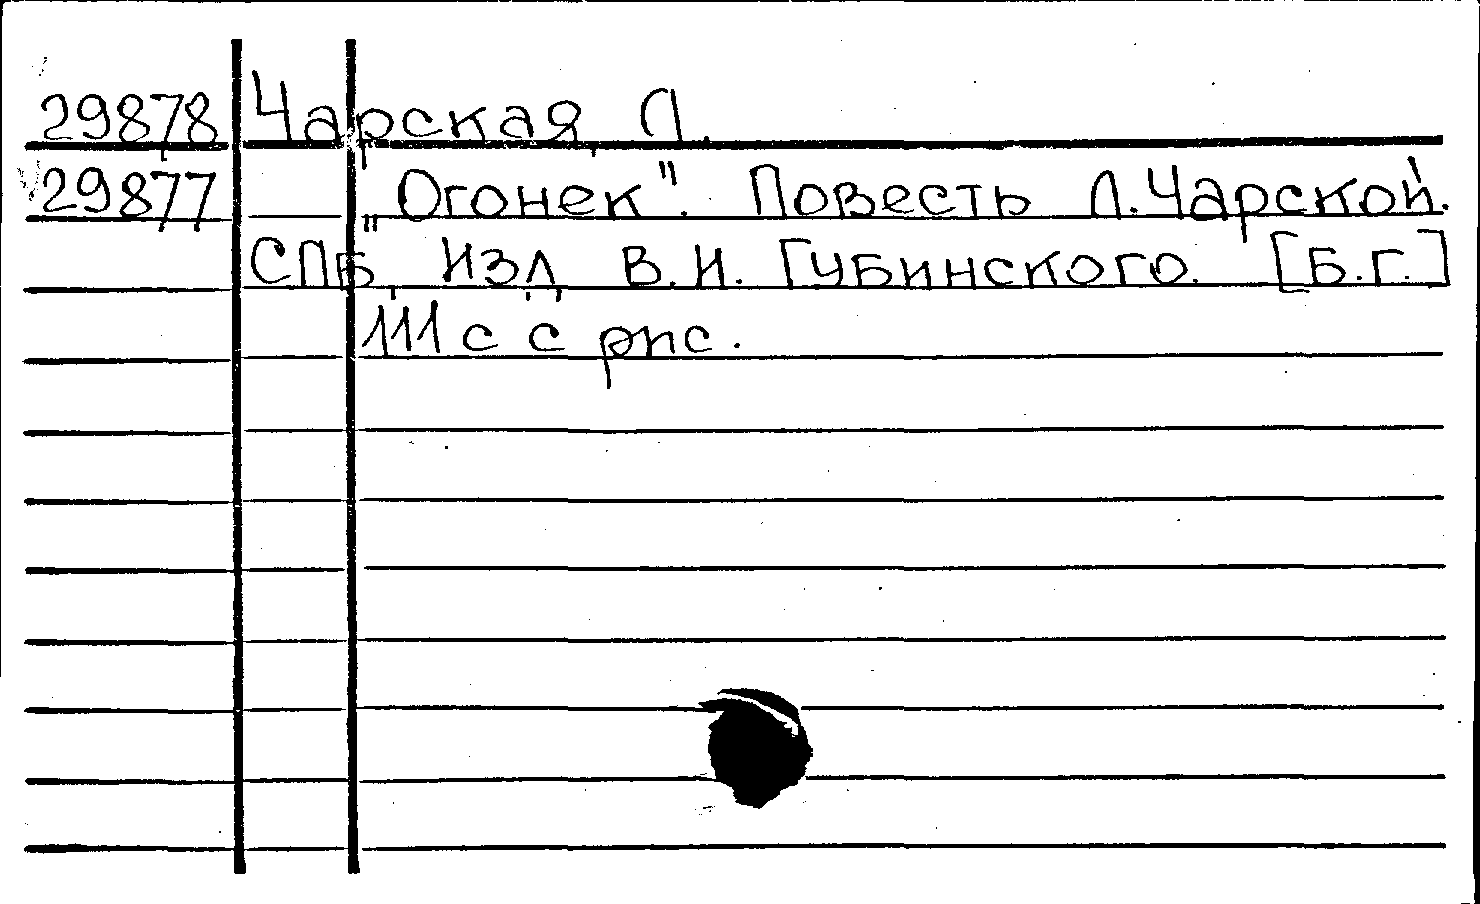 29878 Чарская, Л.
29877 "Огонек". Повесть Л. Чарской.
СПБ, Изд. В.И. Губинского. [Б.г.]
111 с с рис.